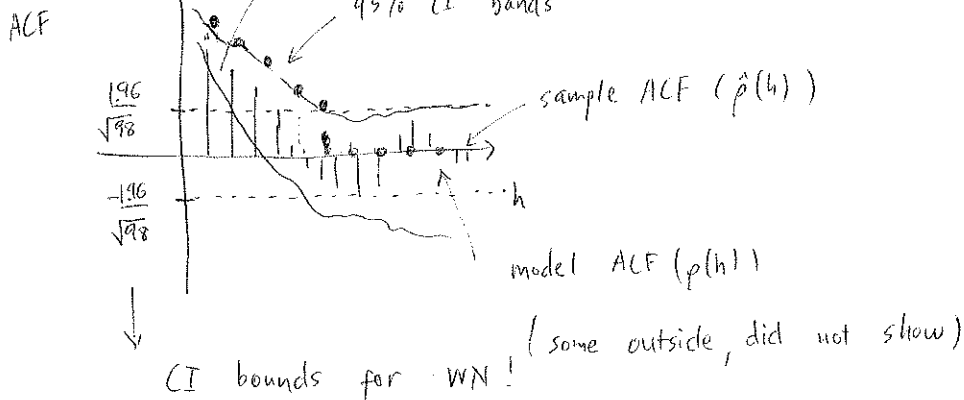 95% CI bands
ACF
1.96
√98
sample ACF (ρ̂(h))
-1.96
√98
h
model ACF (ρ(h))
(some outside, did not show)
CI bounds for WN!